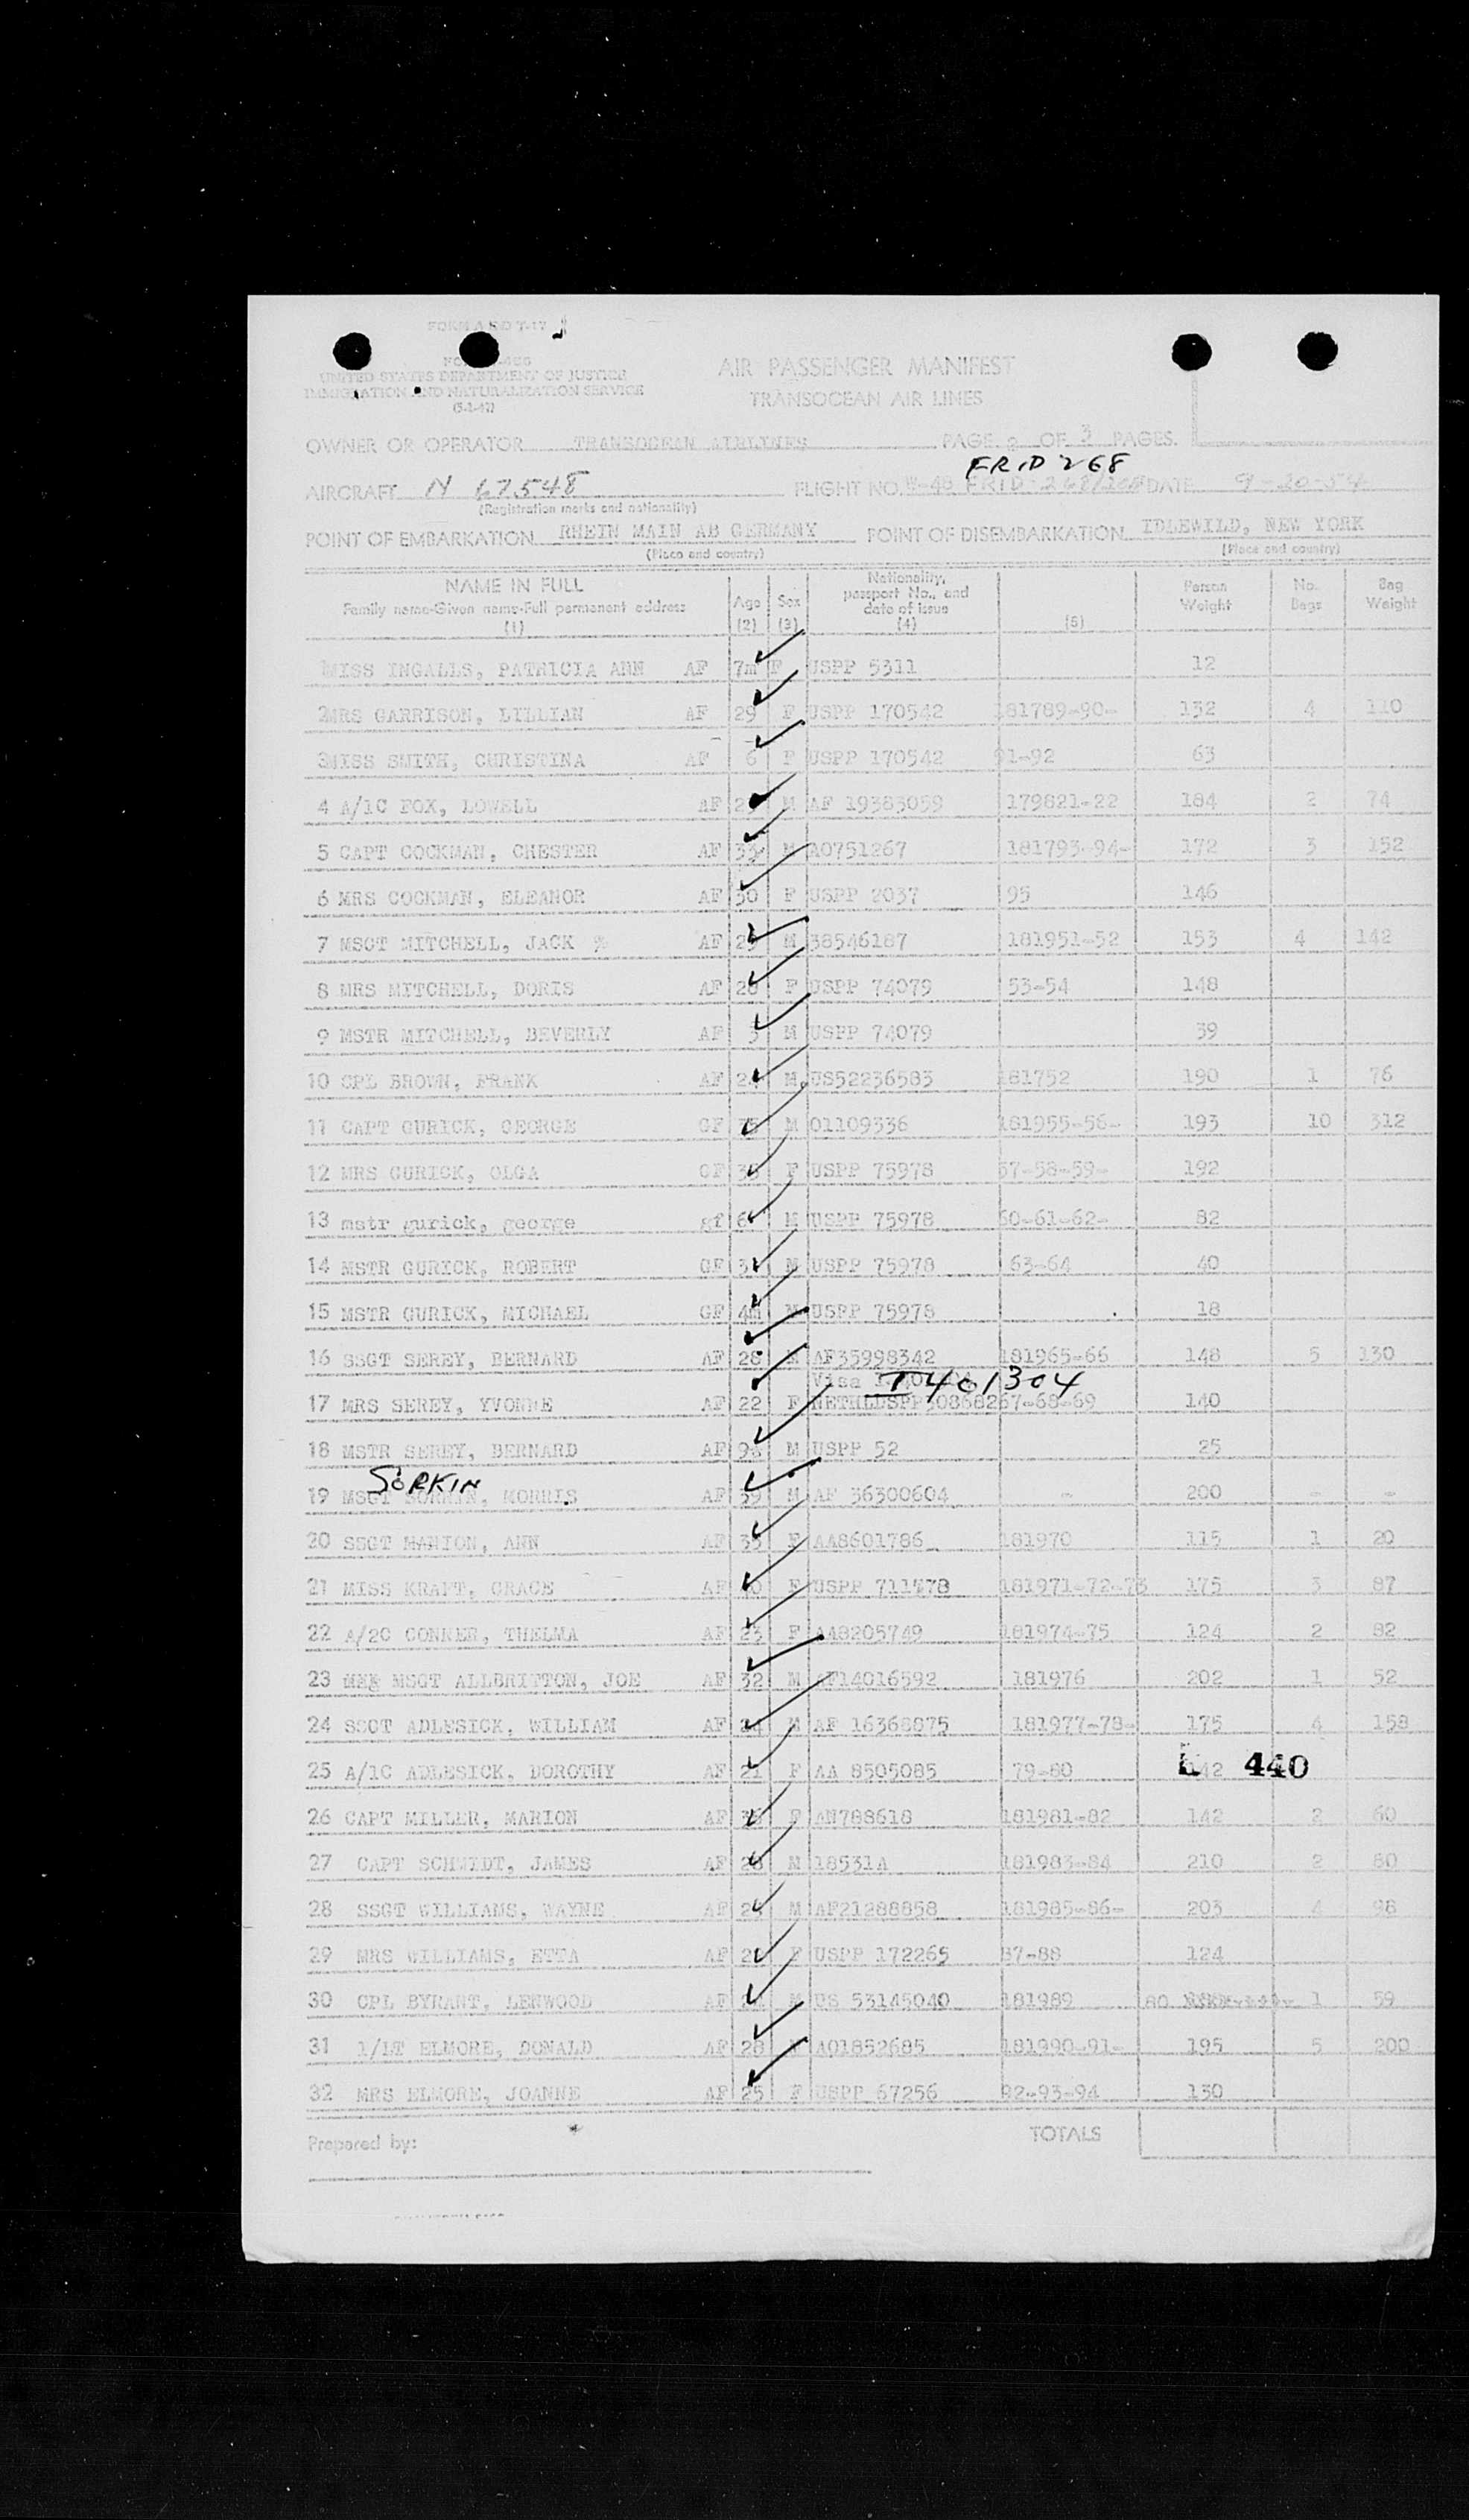 FORM A AND T-17
UNITED STATES DEPARTMENT OF JUSTICE
IMMIGRATION AND NATURALIZATION SERVICE
AIR PASSENGER MANIFEST
TRANSOCEAN AIR LINES
OWNER OR OPERATOR TRANSOCEAN AIRLINES PAGE 2 OF 3 PAGES.
FRID 268
AIRCRAFT N 67548 FLIGHT NO. DATE 9-20-54
(Registration marks and nationality)
POINT OF EMBARKATION RHEIN MAIN AB GERMANY POINT OF DISEMBARKATION IDLEWILD, NEW YORK
(Place and country) (Place and country)
NAME IN FULL Age Sex Nationality, passport No., and date of issue Person Weight No. Bags Bag Weight
Family name-Given name-Full permanent address
(1) (2) (3) (4) (5)
1 MISS INGALLS, PATRICIA ANN AF 7m F USPP 5311 12
2 MRS GARRISON, LILLIAN AF 29 F USPP 170542 181789-90- 132 4 110
3 MISS SMITH, CHRISTINA AF 6 F USPP 170542 91-92 63
4 A/1C FOX, LOWELL AF M AF 19383059 179821-22 184 2 74
5 CAPT COCKMAN, CHESTER AF M AO751267 181793-94- 172 3 152
6 MRS COCKMAN, ELEANOR AF 30 F USPP 2037 95 146
7 MSGT MITCHELL, JACK AF M 38546187 181951-52 153 4 142
8 MRS MITCHELL, DORIS AF F USPP 74079 53-54 148
9 MSTR MITCHELL, BEVERLY AF M USPP 74079 39
10 CPL BROWN, FRANK AF M US52236583 181752 190 1 76
11 CAPT GURICK, GEORGE GF M 01109336 181955-56- 193 10 312
12 MRS GURICK, OLGA GF F USPP 75978 57-58-59- 192
13 mstr gurick, george gf 6 M USPP 75978 60-61-62- 82
14 MSTR GURICK, ROBERT GF M USPP 75978 63-64 40
15 MSTR GURICK, MICHAEL GF 4m M USPP 75978 18
16 SSGT SEREY, BERNARD AF 28 M AF35998342 181965-66 148 5 130
Visa T401304
17 MRS SEREY, YVONNE AF 22 F NETHLDSPP 30868267-68-69 140
18 MSTR SEREY, BERNARD AF M USPP 52 25
SORKIN
19 MSGT SORKIN, MORRIS AF 39 M AF 36300604 - 200 - -
20 SSGT MARION, ANN AF 33 F AA8601786 181970 115 1 20
21 MISS KRAFT, GRACE AF F USPP 711778 181971-72-73 175 3 87
22 A/2C CONNER, THELMA AF 23 F AA8205749 181974-75 124 2 82
23 MSGT ALLBRITTON, JOE AF 32 M AF14016592 181976 202 1 52
24 SSGT ADLESICK, WILLIAM AF 24 M AF 16368875 181977-78- 175 4 158
25 A/1C ADLESICK, DOROTHY AF 21 F AA 8505085 79-80 142 440
26 CAPT MILLER, MARION AF F AN788618 181981-82 142 2 60
27 CAPT SCHMIDT, JAMES AF 28 M 18531A 181983-84 210 2 80
28 SSGT WILLIAMS, WAYNE AF M AF21288858 181985-86- 203 4 98
29 MRS WILLIAMS, ETTA AF F USPP 172265 87-88 124
30 CPL BYRANT, LENWOOD AF M US 53145040 181989 1 59
31 1/LT ELMORE, DONALD AF 28 M AO1852685 181990-91- 195 5 200
32 MRS ELMORE, JOANNE AF 25 F USPP 67256 92-93-94 130
Prepared by: TOTALS